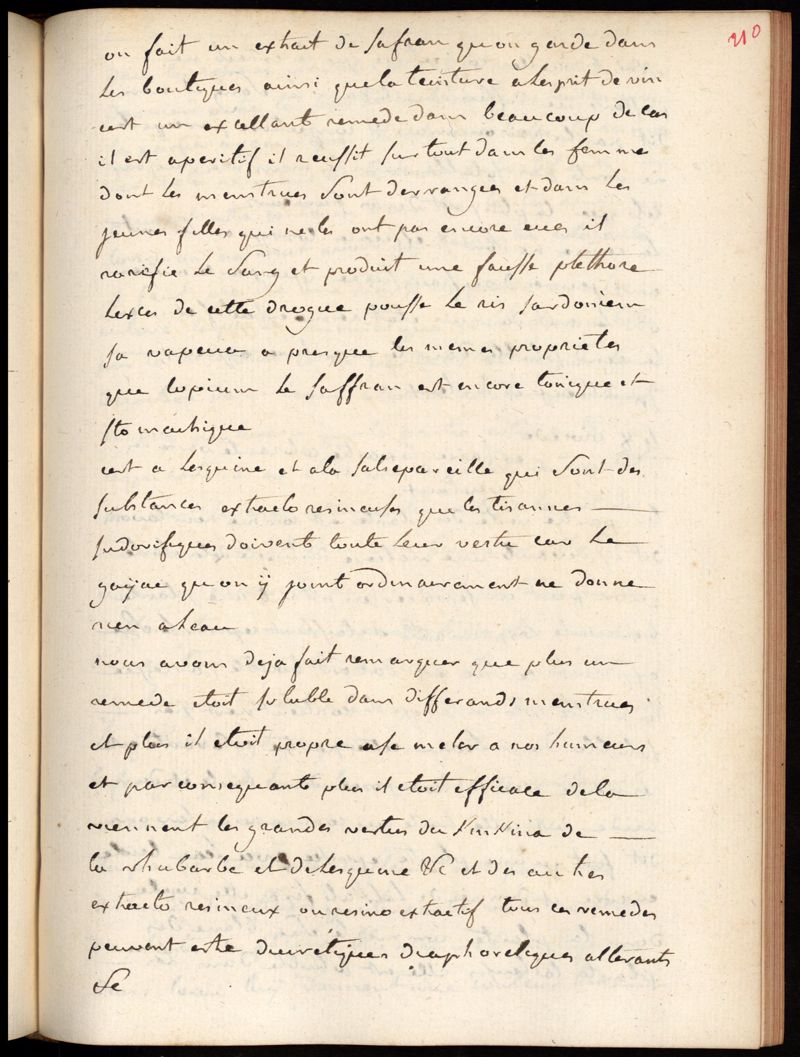 210
on fait un extrait de safran qu on garde dans
les boutiques ainsi que la teinture a lesprit de vin
cest un excellant remede dans beaucoup de cas
il est aperitif il reussit sur tout dans les femme
dont les menstrues sont derrangees et dans les
jeunes filles qui ne les ont pas encore eues il
rarefie le sang et produit une fausse plethore
lexces de cette drogue pousse le ris sardonien
sa vapeur a presque les memes proprietes
que lopium le saffran est encore tonique et
stomachique
cest a lesquine et a la salsepareille qui sont des
substances extracto resineuses que les tisannes
sudorifiques doivent toute leur vertu car le
gayac qu on ÿ joint ordinairement ne donne
rien a leau
nous avons deja fait remarquer que plus un
remede etoit soluble dans differands menstrues
et plus il etoit propre a se meler a nos humeurs
et par consequant plus il etoit efficace de la
viennent les grandes vertus du KinKina de
la rhubarbe et de lesquine &c et des autres
extracto resineux ou resino extractif tous ces remedes
peuvent estre diuretiques diaphoretiques alterants
&c